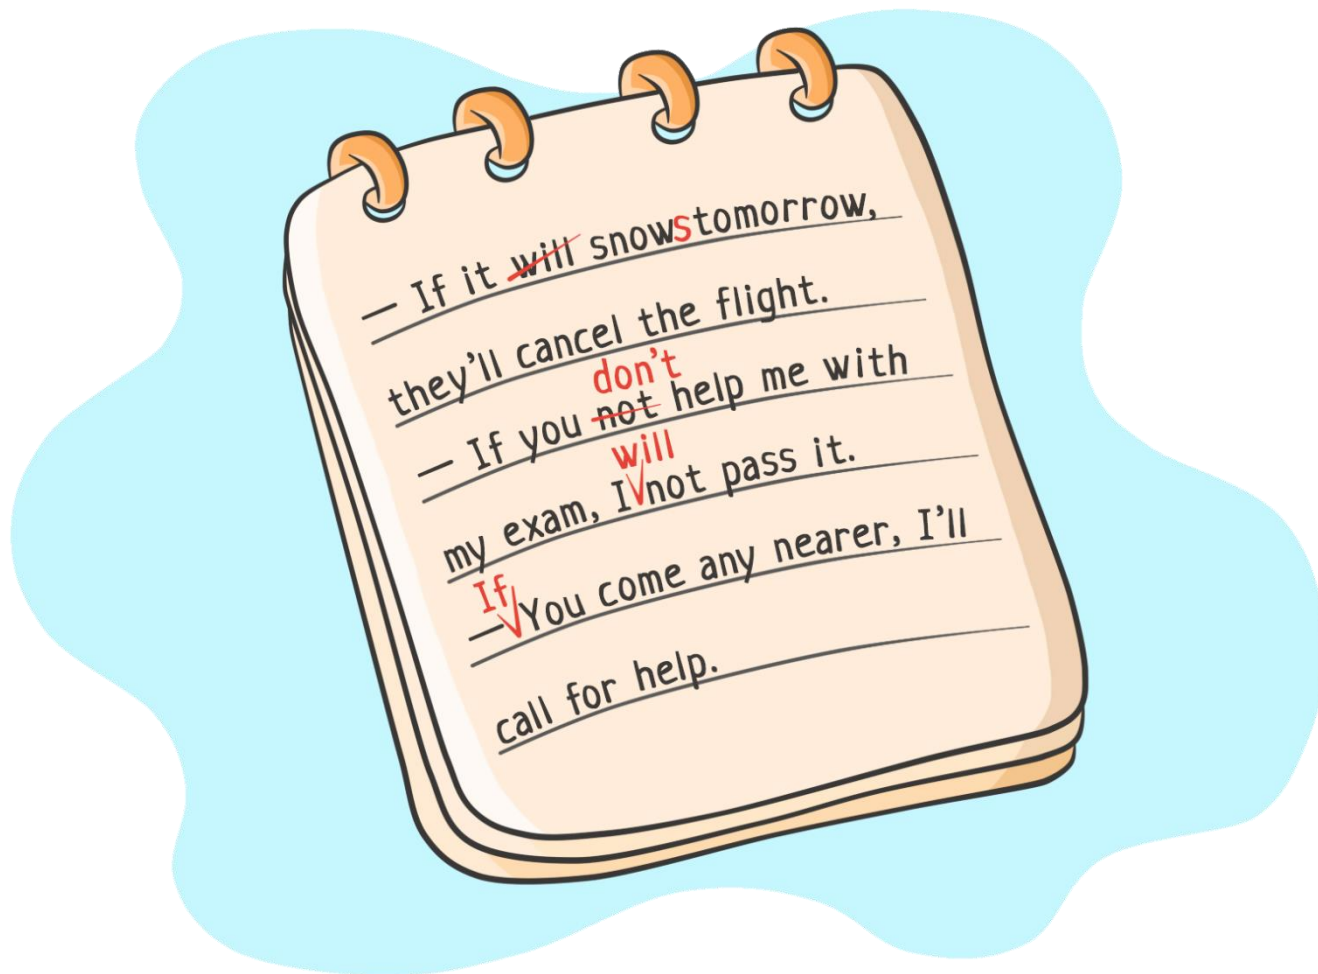 — If it will snows tomorrow,
they'll cancel the flight.
don't
— If you not help me with
will
my exam, I not pass it.
If
— You come any nearer, I'll
call for help.